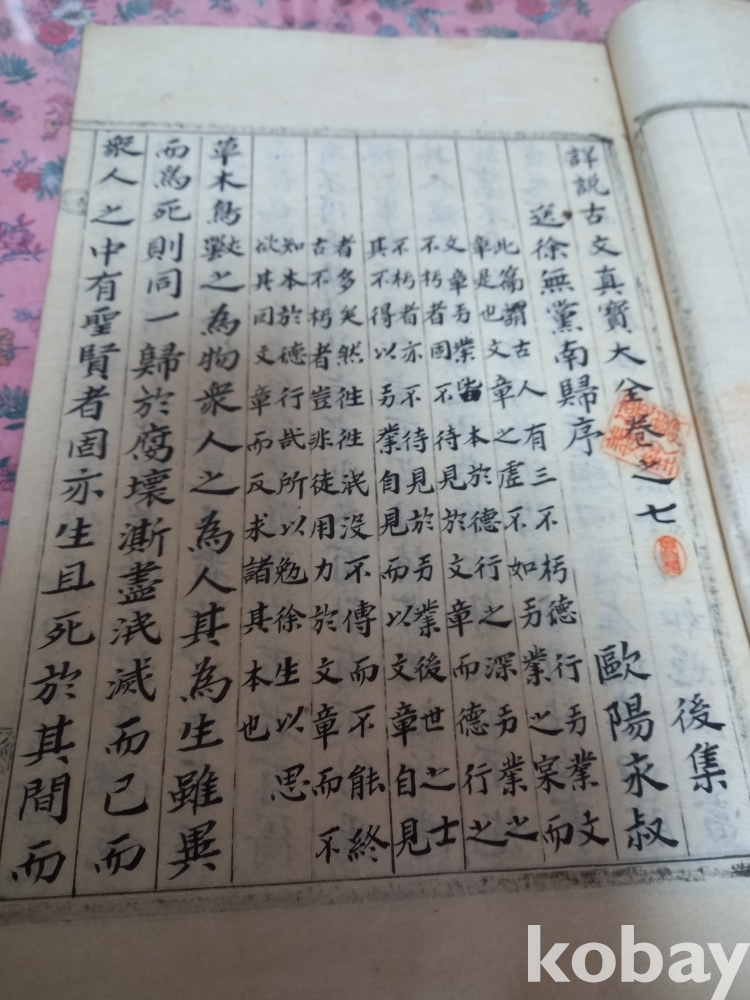 詳說古文真寶大全卷之七 後集
送徐無黨南歸序 歐陽永叔
此篇謂古人有三不朽德行功業文
章是也文章之虛不如功業之寀而
文章功業皆本於德行之深功業之
不朽者固不待見於文章而德行之
不朽者亦不待見於功業後世之士
其不得以功業自見而以文章自見
者多矣然徃徃泯没不傳而不能終
古不朽者豈非徒用力於文章而不
知本於德行哉所以勉徐生以思
欲其因文章而反求諸其本也
草木鳥獸之為物衆人之為人其為生雖異
而為死則同一歸於腐壞澌盡泯滅而已而
衆人之中有聖賢者固亦生且死於其間而
kobay